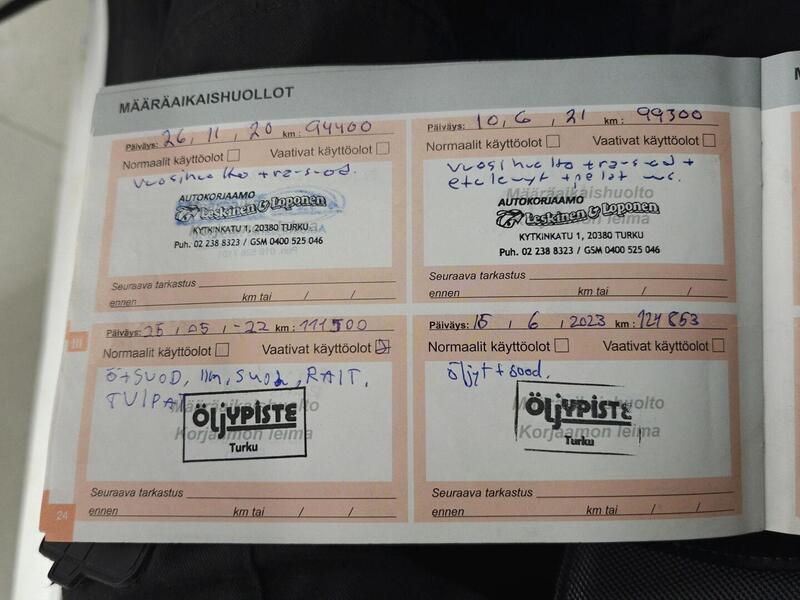 MÄÄRÄAIKAISHUOLLOT
Päiväys: 26, 11, 20 km: 94400
Normaalit käyttöolot Vaativat käyttöolot
Vuosihuolto +ra-suod.
AUTOKORJAAMO
Leskinen & Loponen
KYTKINKATU 1, 20380 TURKU
Puh. 02 238 8323 / GSM 0400 525 046
Seuraava tarkastus
ennen km tai / /
Päiväys: 10, 6, 21 km: 99300
Normaalit käyttöolot Vaativat käyttöolot
Vuosihuolto +ra-suod +
Määräaikaishuolto
AUTOKORJAAMO
Leskinen & Loponen
KYTKINKATU 1, 20380 TURKU
Puh. 02 238 8323 / GSM 0400 525 046
Seuraava tarkastus
ennen km tai / /
III
Päiväys: 25, 05, -22 km: 111500
Normaalit käyttöolot Vaativat käyttöolot
Ö+SUOD, ilm, SUOD, RAIT,
TULPAT
Määräaikaishuolto
ÖLJYPISTE
Korjaamon leima
Turku
Seuraava tarkastus
ennen km tai / /
Päiväys: 15, 6, 2023 km: 124853
Normaalit käyttöolot Vaativat käyttöolot
öljyt + suod.
Määräaikaishuolto
ÖLJYPISTE
Korjaamon leima
Turku
Seuraava tarkastus
ennen km tai / /
24